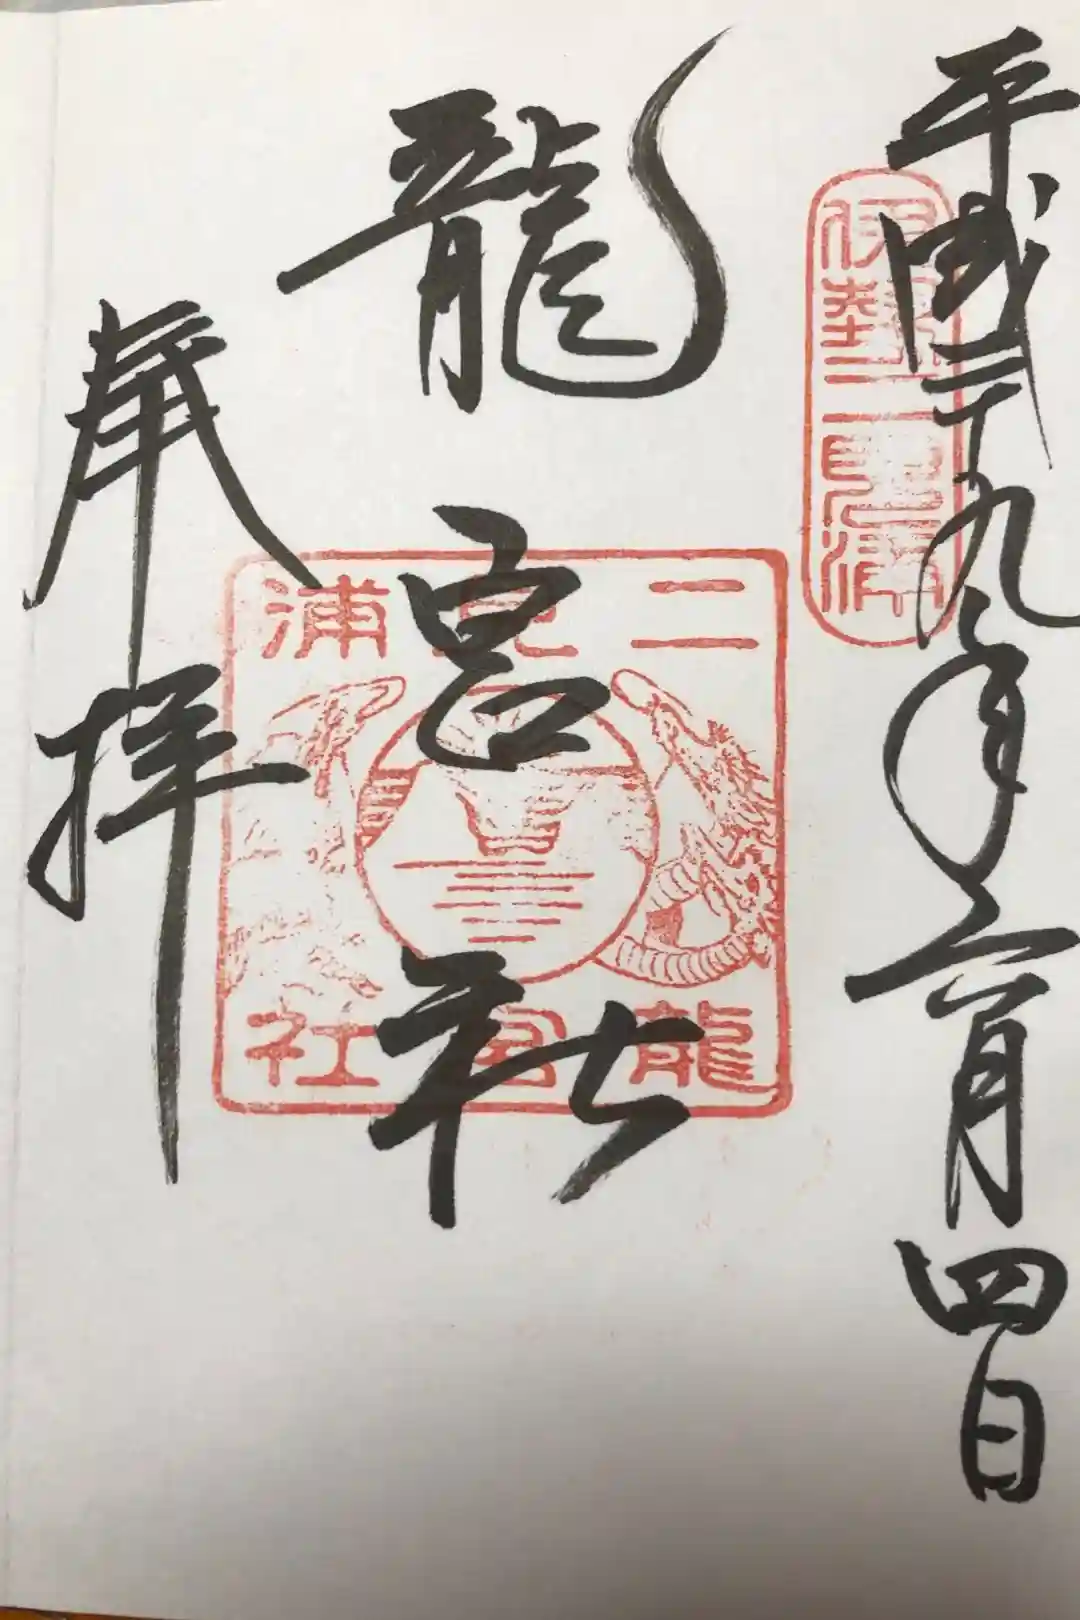 平成二十九年六月四日
伊勢二見
龍宮社
二見浦
龍宮社
奉拝